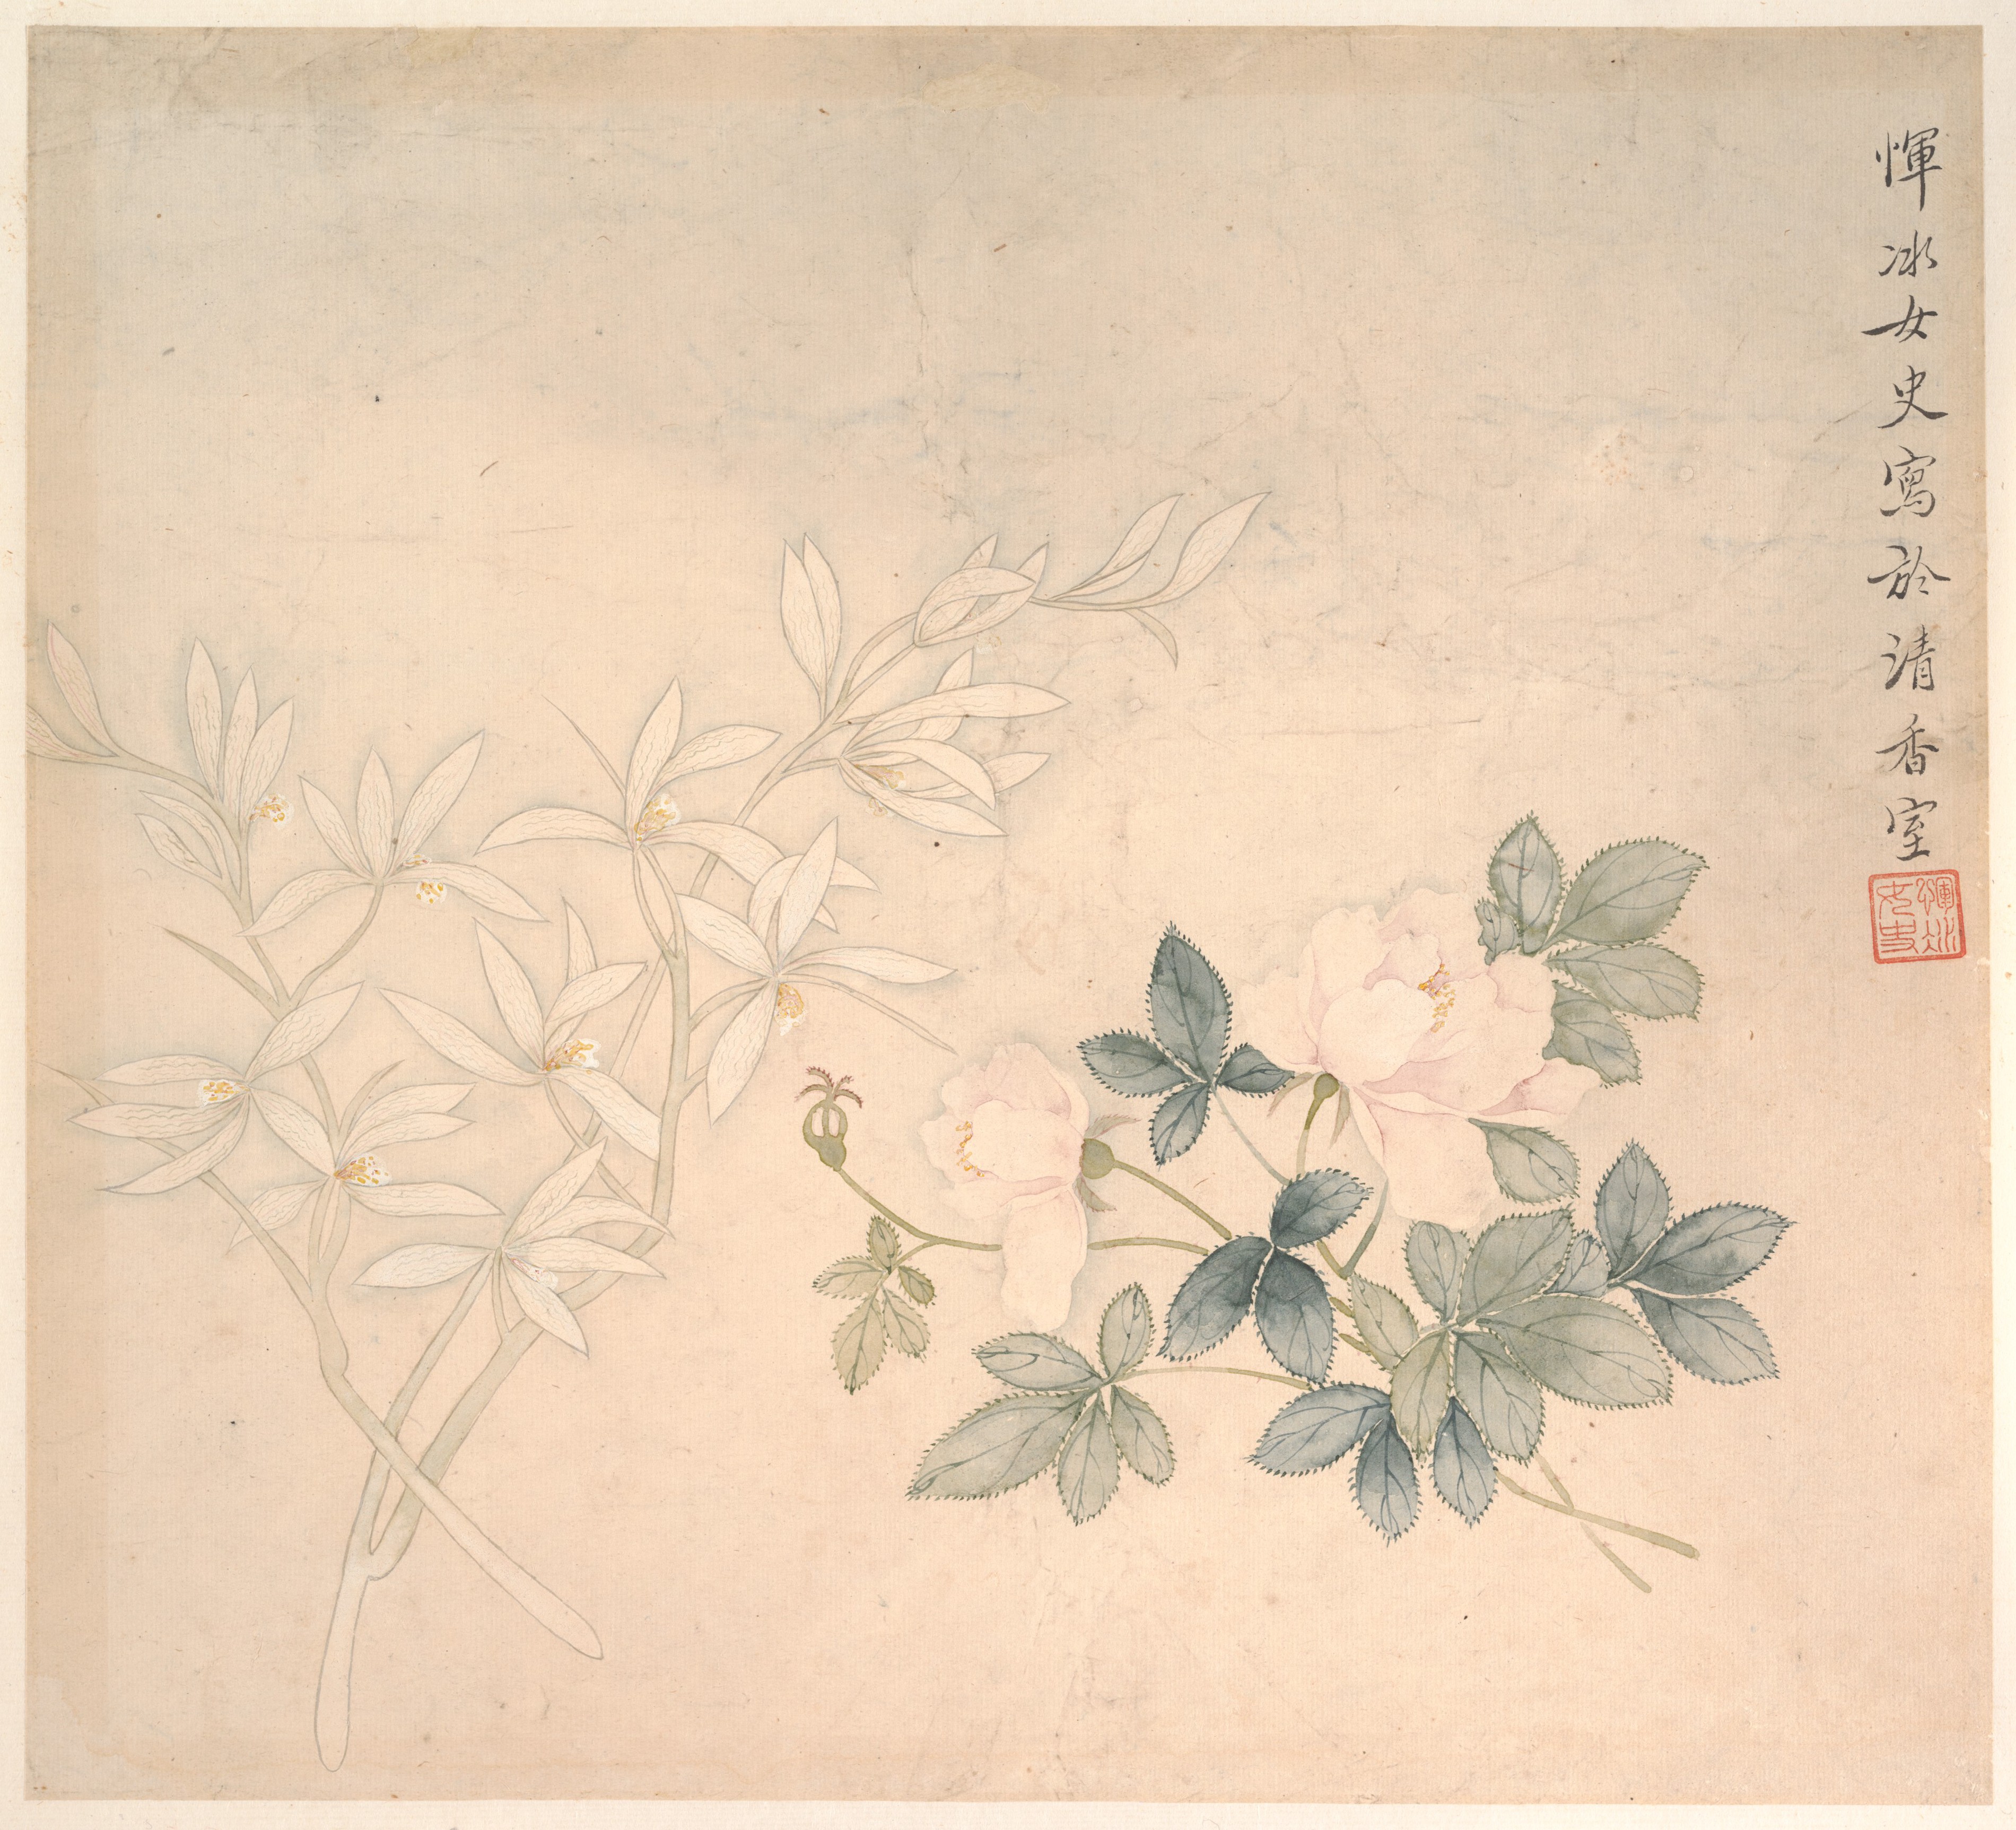 惲冰女史寫於清香室
惲冰
女史